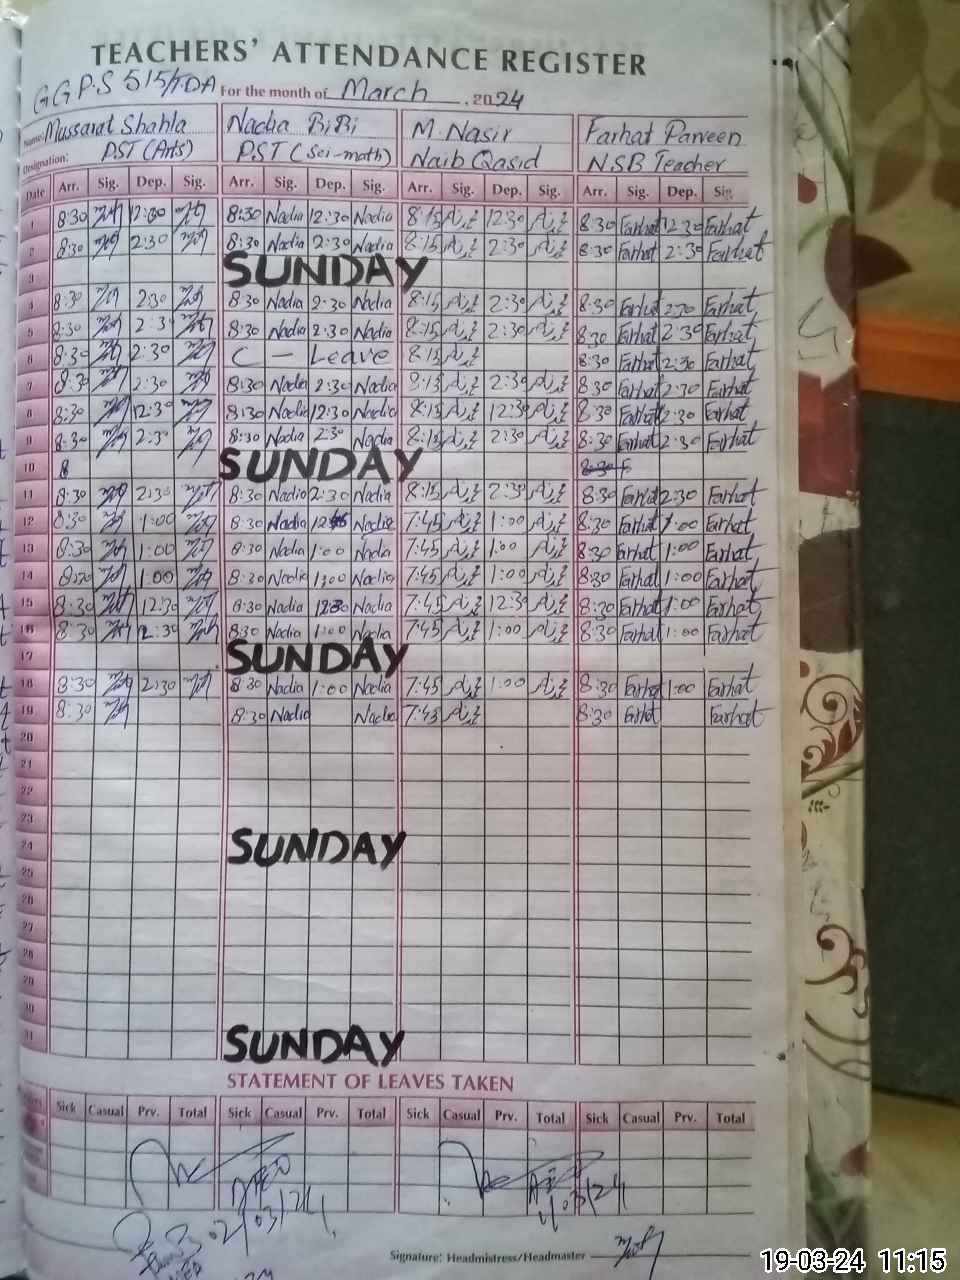 TEACHERS' ATTENDANCE REGISTER
GGPS 515/TDA For the month of March, 2024
Name: Mussarat Shahla Nadia BiBi M. Nasir Farhat Parveen
Designation: PST (Arts) PST (Sci-math) Naib Qasid NSB Teacher
Date Arr. Sig. Dep. Sig. Arr. Sig. Dep. Sig. Arr. Sig. Dep. Sig. Arr. Sig. Dep. Sig.
1 8:30 12:30 8:30 Nadia 12:30 Nadia 8:15 12:30 8:30 Farhat 12:30 Farhat
2 8:30 2:30 8:30 Nadia 2:30 Nadia 8:15 2:30 8:30 Farhat 2:30 Farhat
3 SUNDAY
4 8:30 2:30 8:30 Nadia 2:30 Nadia 8:15 2:30 8:30 Farhat 2:30 Farhat
5 8:30 2:30 8:30 Nadia 2:30 Nadia 8:15 2:30 8:30 Farhat 2:30 Farhat
6 8:30 2:30 C - Leave 8:15 8:30 Farhat 2:30 Farhat
7 8:30 2:30 8:30 Nadia 2:30 Nadia 8:15 2:30 8:30 Farhat 2:30 Farhat
8 8:30 12:30 8:30 Nadia 12:30 Nadia 8:15 12:30 8:30 Farhat 12:30 Farhat
9 8:30 2:30 8:30 Nadia 2:30 Nadia 8:15 2:30 8:30 Farhat 2:30 Farhat
10 8 SUNDAY
11 8:30 2:30 8:30 Nadia 2:30 Nadia 8:15 2:30 8:30 Farhat 2:30 Farhat
12 8:30 1:00 8:30 Nadia Nadia 7:45 1:00 8:30 Farhat 1:00 Farhat
13 8:30 1:00 8:30 Nadia 1:00 Nadia 7:45 1:00 8:30 Farhat 1:00 Farhat
14 8:30 1:00 8:30 Nadia 1:00 Nadia 7:45 1:00 8:30 Farhat 1:00 Farhat
15 8:30 12:30 8:30 Nadia 12:30 Nadia 7:45 12:30 8:30 Farhat 1:00 Farhat
16 8:30 2:30 8:30 Nadia 1:00 Nadia 7:45 1:00 8:30 Farhat 1:00 Farhat
17 SUNDAY
18 8:30 2:30 8:30 Nadia 1:00 Nadia 7:45 1:00 8:30 Farhat 1:00 Farhat
19 8:30 8:30 Nadia Nadia 7:45 8:30 Farhat Farhat
20
21
22
23
24 SUNDAY
25
26
27
28
29
30
31 SUNDAY
STATEMENT OF LEAVES TAKEN
Sick Casual Prv. Total Sick Casual Prv. Total Sick Casual Prv. Total Sick Casual Prv. Total
02/03/24
Signature: Headmistress/Headmaster
19-03-24 11:15